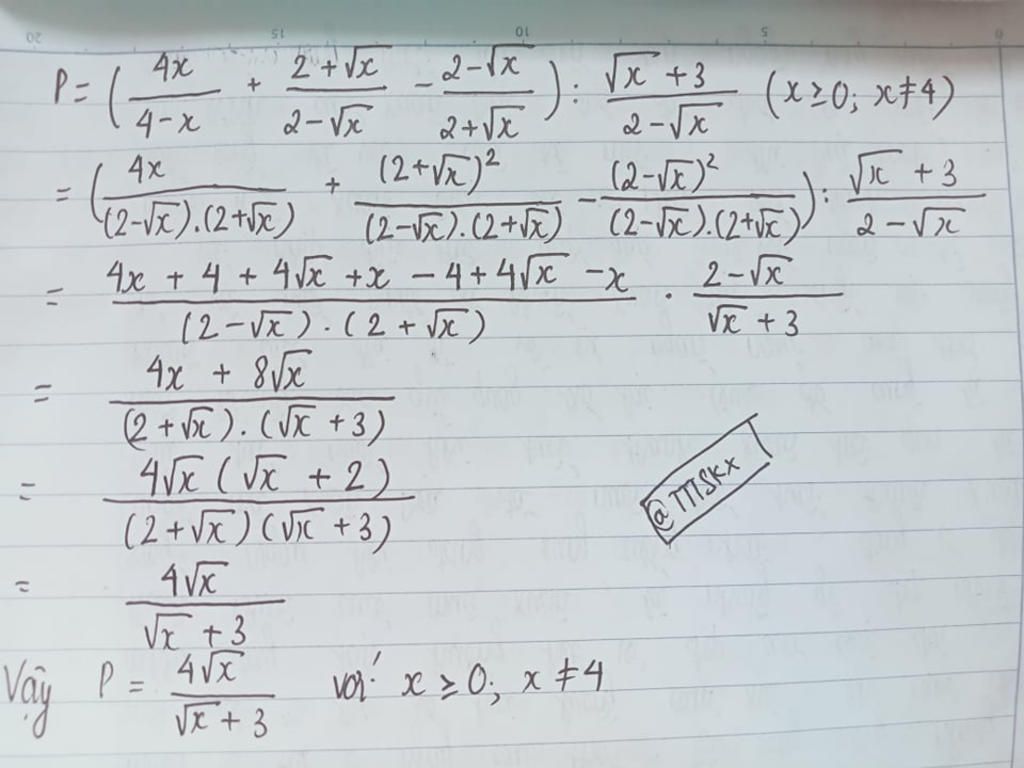 P = ( 4x/(4-x) + (2+√x)/(2-√x) - (2-√x)/(2+√x) ) : (√x+3)/(2-√x) (x ≥ 0; x ≠ 4)
= ( 4x/((2-√x).(2+√x)) + (2+√x)²/((2-√x).(2+√x)) - (2-√x)²/((2-√x).(2+√x)) ) : (√x+3)/(2-√x)
= (4x + 4 + 4√x + x - 4 + 4√x - x)/((2-√x).(2+√x)) . (2-√x)/(√x+3)
= (4x + 8√x)/((2+√x).(√x+3))
= 4√x(√x+2)/((2+√x)(√x+3))
@MSKX
= 4√x/(√x+3)
Vậy P = 4√x/(√x+3) với x ≥ 0; x ≠ 4
20 15 10 5 0